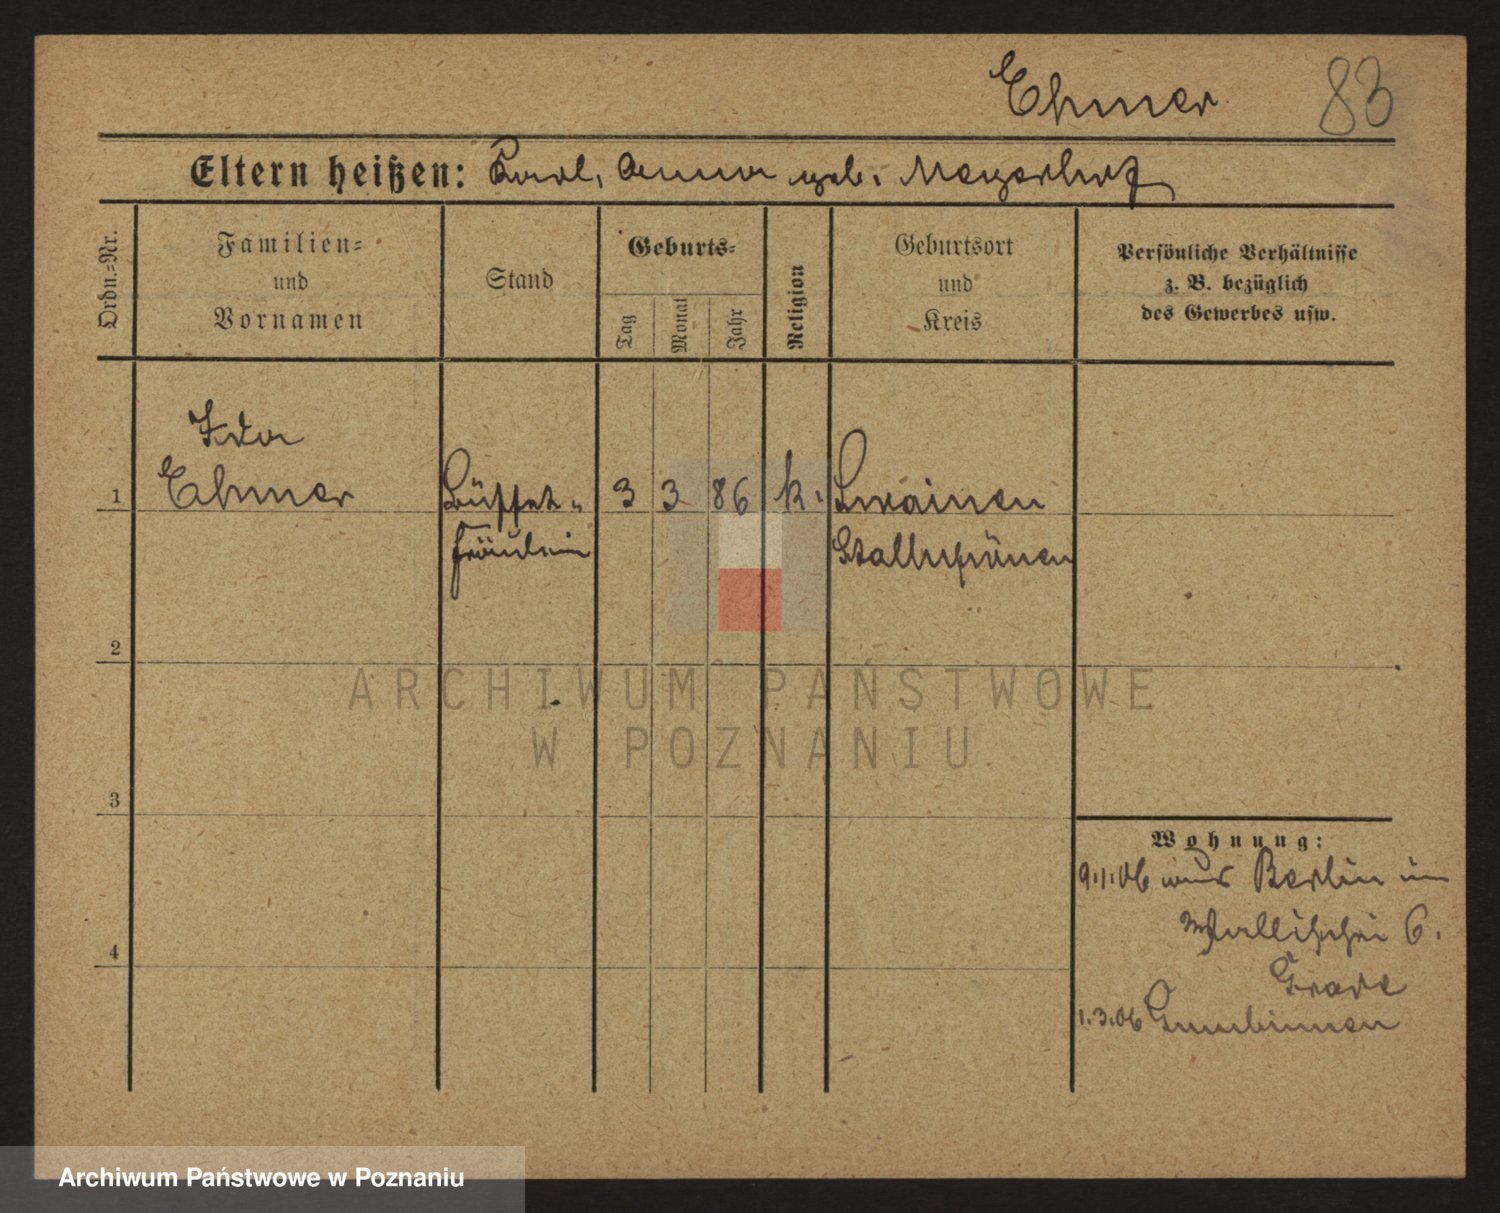 Ehmer 83
Eltern heißen: Karl, Anna geb. Meyerhof
Ordn.=Nr.
Familien=
und
Vornamen
Stand
Geburts=
Tag
Monat
Jahr
Religion
Geburtsort
und
Kreis
Persönliche Verhältnisse
z. B. bezüglich
des Gewerbes usw.
Ida
1 Ehmer Büffet= 3 3 86 k.
fräulein Stallupönen
2
3
4
Wohnung:
9.1.06 aus Berlin in
Wallischei 6.
1.3.06 Gumbinnen
ARCHIWUM PAŃSTWOWE
W POZNANIU
Archiwum Państwowe w Poznaniu